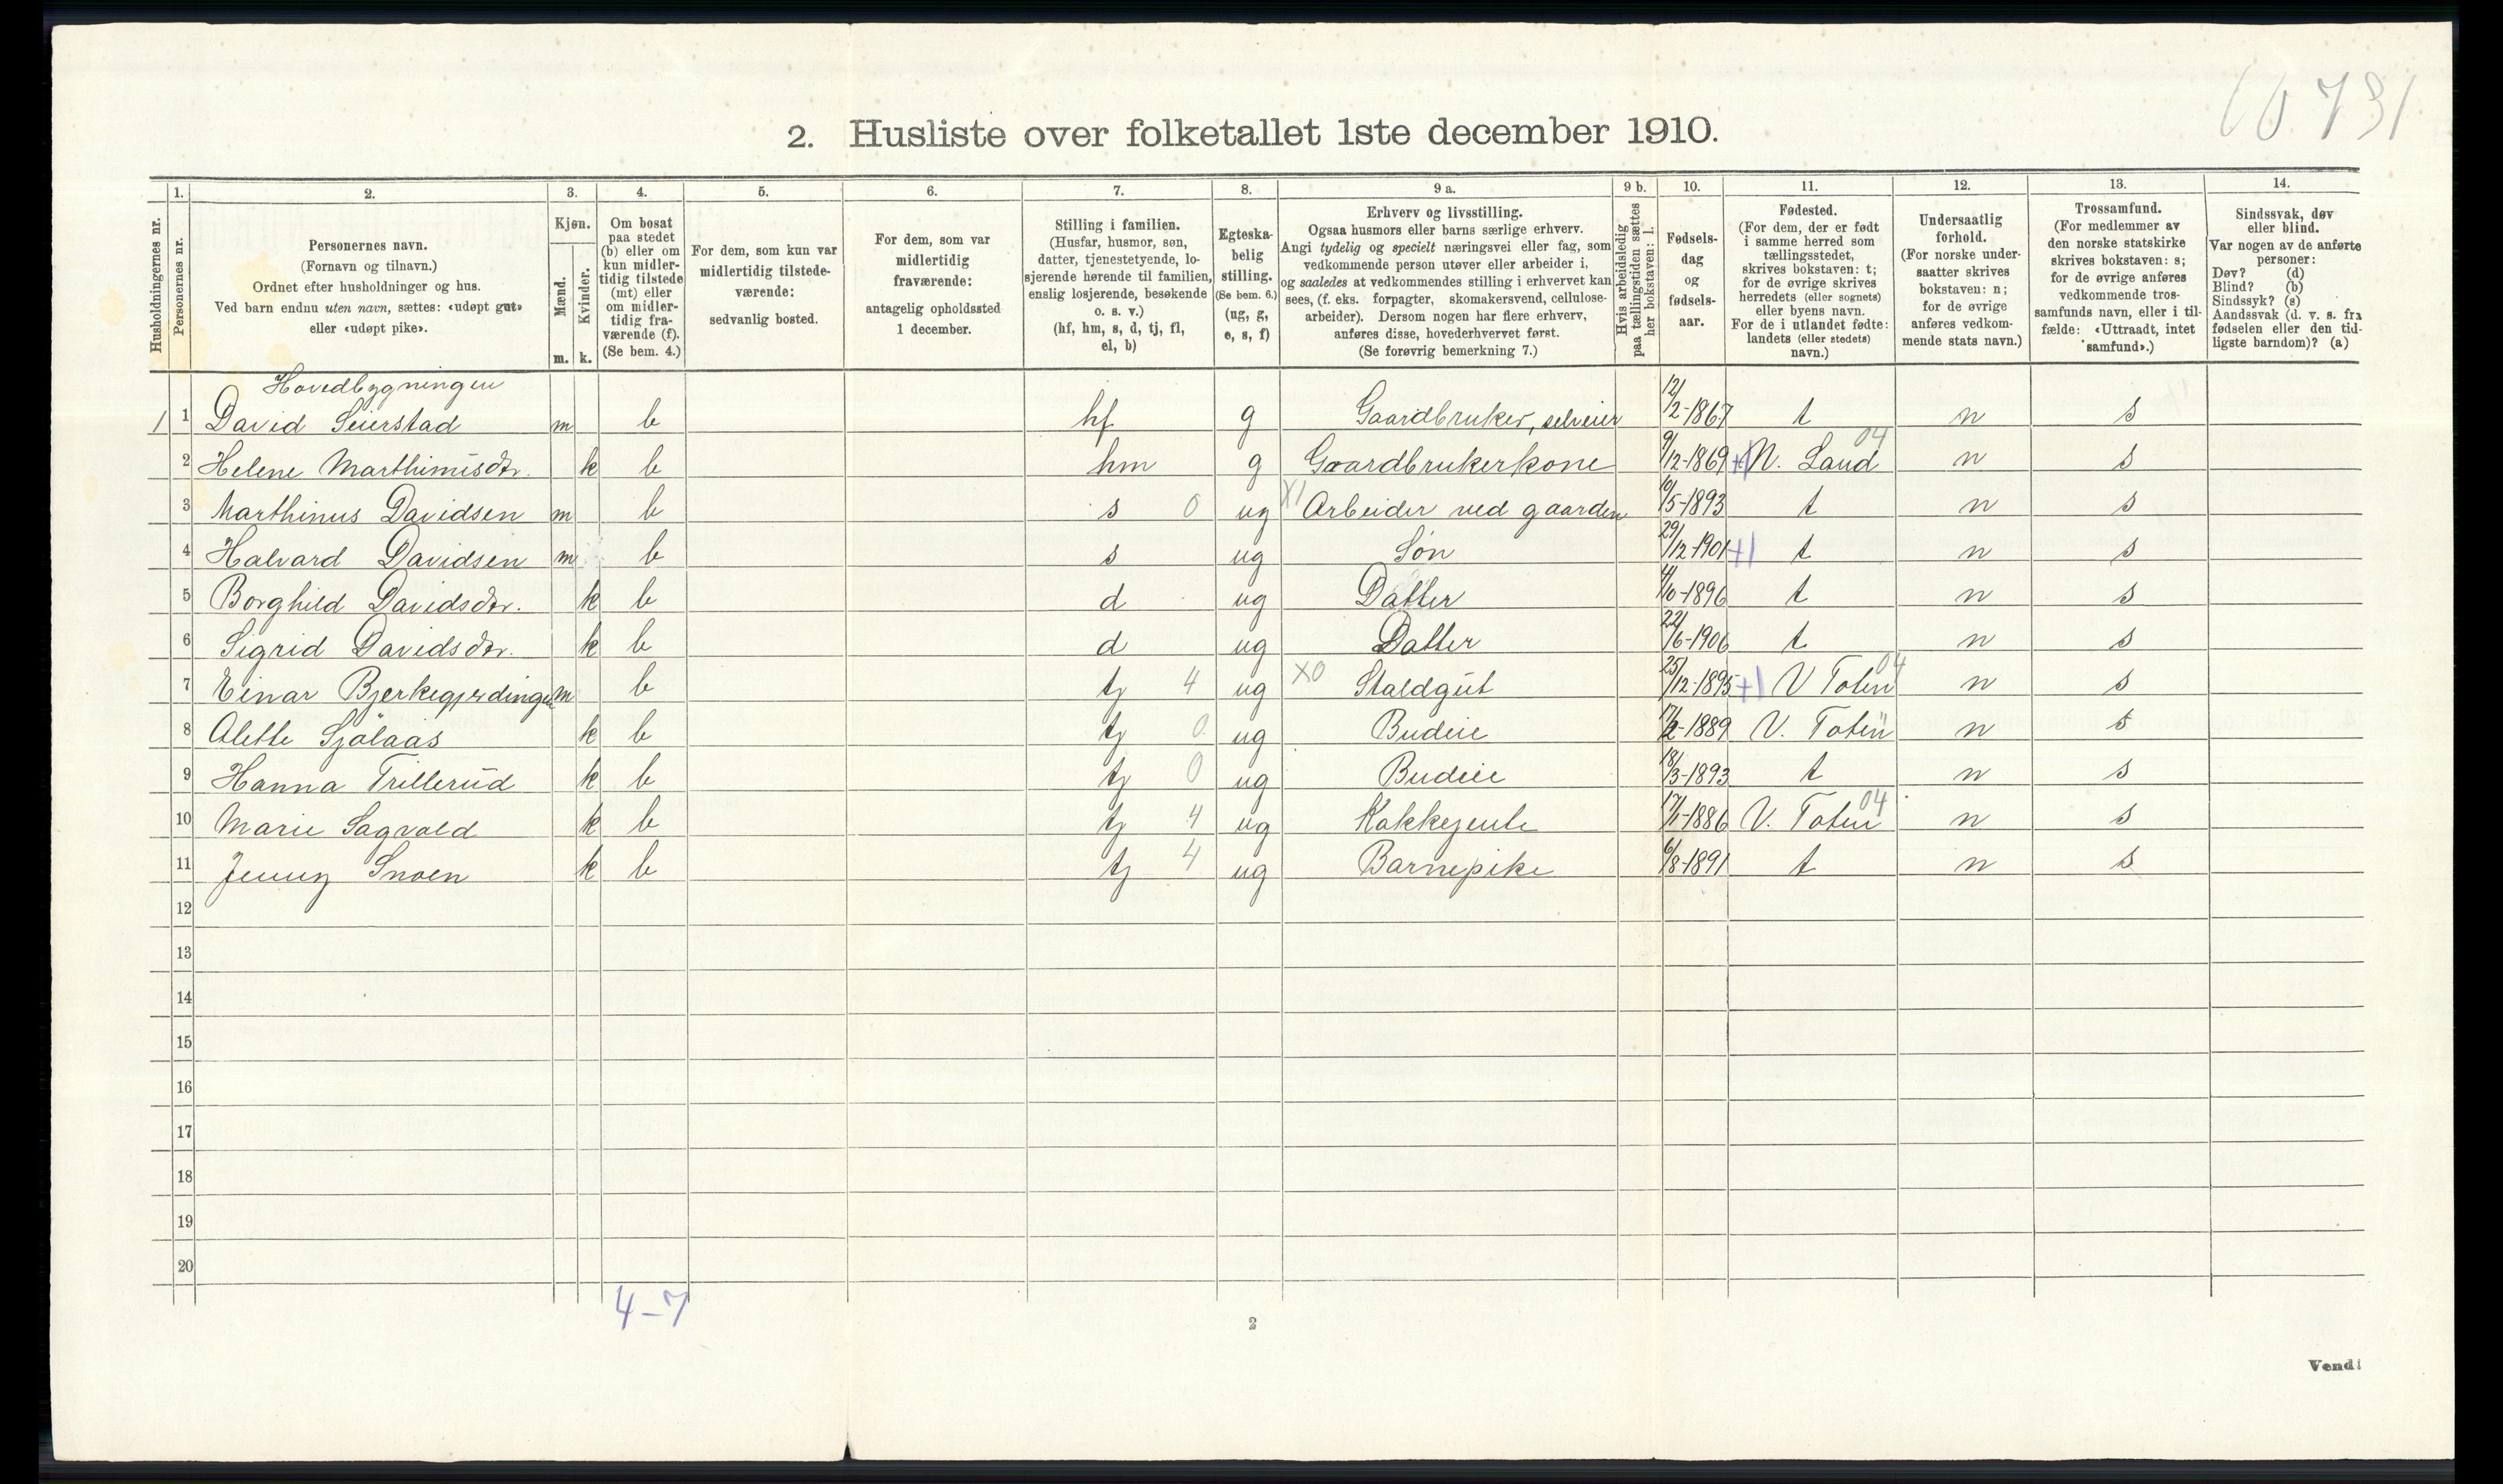 60 731
2. Husliste over folketallet 1ste december 1910.
Husholdningernes nr.
1. Personernes nr.
2. Personernes navn.
(Fornavn og tilnavn.)
Ordnet efter husholdninger og hus.
Ved barn endnu uten navn, sættes: «udøpt gut»
eller «udøpt pike».
3. Kjøn.
Mænd. m.
Kvinder. k.
4. Om bosat
paa stedet
(b) eller om
kun midler-
tidig tilstede
(mt) eller
om midler-
tidig fra-
værende (f).
(Se bem. 4.)
5. For dem, som kun var
midlertidig tilstede-
værende:
sedvanlig bosted.
6. For dem, som var
midlertidig
fraværende:
antagelig opholdssted
1 december.
7. Stilling i familien.
(Husfar, husmor, søn,
datter, tjenestetyende, lo-
sjerende hørende til familien,
enslig losjerende, besøkende
o. s. v.)
(hf, hm, s, d, tj, fl,
el, b)
8. Egteska-
belig
stilling.
(Se bem. 6.)
(ug, g,
e, s, f)
9 a. Erhverv og livsstilling.
Ogsaa husmors eller barns særlige erhverv.
Angi tydelig og specielt næringsvei eller fag, som
vedkommende person utøver eller arbeider i,
og saaledes at vedkommendes stilling i erhvervet kan
sees, (f. eks. forpagter, skomakersvend, cellulose-
arbeider). Dersom nogen har flere erhverv,
anføres disse, hovederhvervet først.
(Se forøvrig bemerkning 7.)
9 b. Hvis arbeidsledig
paa tællingstiden sættes
her bokstaven: l.
10. Fødsels-
dag
og
fødsels-
aar.
11. Fødested.
(For dem, der er født
i samme herred som
tællingsstedet,
skrives bokstaven: t;
for de øvrige skrives
herredets (eller sognets)
eller byens navn.
For de i utlandet fødte:
landets (eller stedets)
navn.)
12. Undersaatlig
forhold.
(For norske under-
saatter skrives
bokstaven: n;
for de øvrige
anføres vedkom-
mende stats navn.)
13. Trossamfund.
(For medlemmer av
den norske statskirke
skrives bokstaven: s;
for de øvrige anføres
vedkommende tros-
samfunds navn, eller i til-
fælde: «Uttraadt, intet
samfund».)
14. Sindssvak, døv
eller blind.
Var nogen av de anførte
personer:
Døv? (d)
Blind? (b)
Sindssyk? (s)
Aandssvak (d. v. s. fra
fødselen eller den tid-
ligste barndom)? (a)
Hovedbygningen
1 1 David Seierstad m b hf g Gaardbruker, selveier 12/2-1867 t n s
2 Helene Marthinusdtr. k b hm g Gaardbrukerkone 9/12-1869 + N. Land 04 n s
3 Marthinus Davidsen m b s 0 ug X1 Arbeider ved gaarden 10/5-1893 t n s
4 Halvard Davidsen m b s ug Søn 29/12-1901 +1 t n s
5 Borghild Davidsdtr. k b d ug Datter 4/10-1896 t n s
6 Sigrid Davidsdtr. k b d ug Datter 22/6-1906 t n s
7 Einar Bjerkegjerdingen m b tj 4 ug X0 Staldgut 25/12-1895 +1 V Toten 04 n s
8 Alette Sjølaas k b tj 0 ug Budeie 17/2-1889 V. Toten " n s
9 Hanna Trillerud k b tj 0 ug Budeie 18/3-1893 t n s
10 Marie Sagvold k b tj 4 ug Kokkejente 17/1-1886 V. Toten 04 n s
11 Jenny Snoen k b tj 4 ug Barnepike 6/8-1891 t n s
12
13
14
15
16
17
18
19
20
4-7
2
Vend!